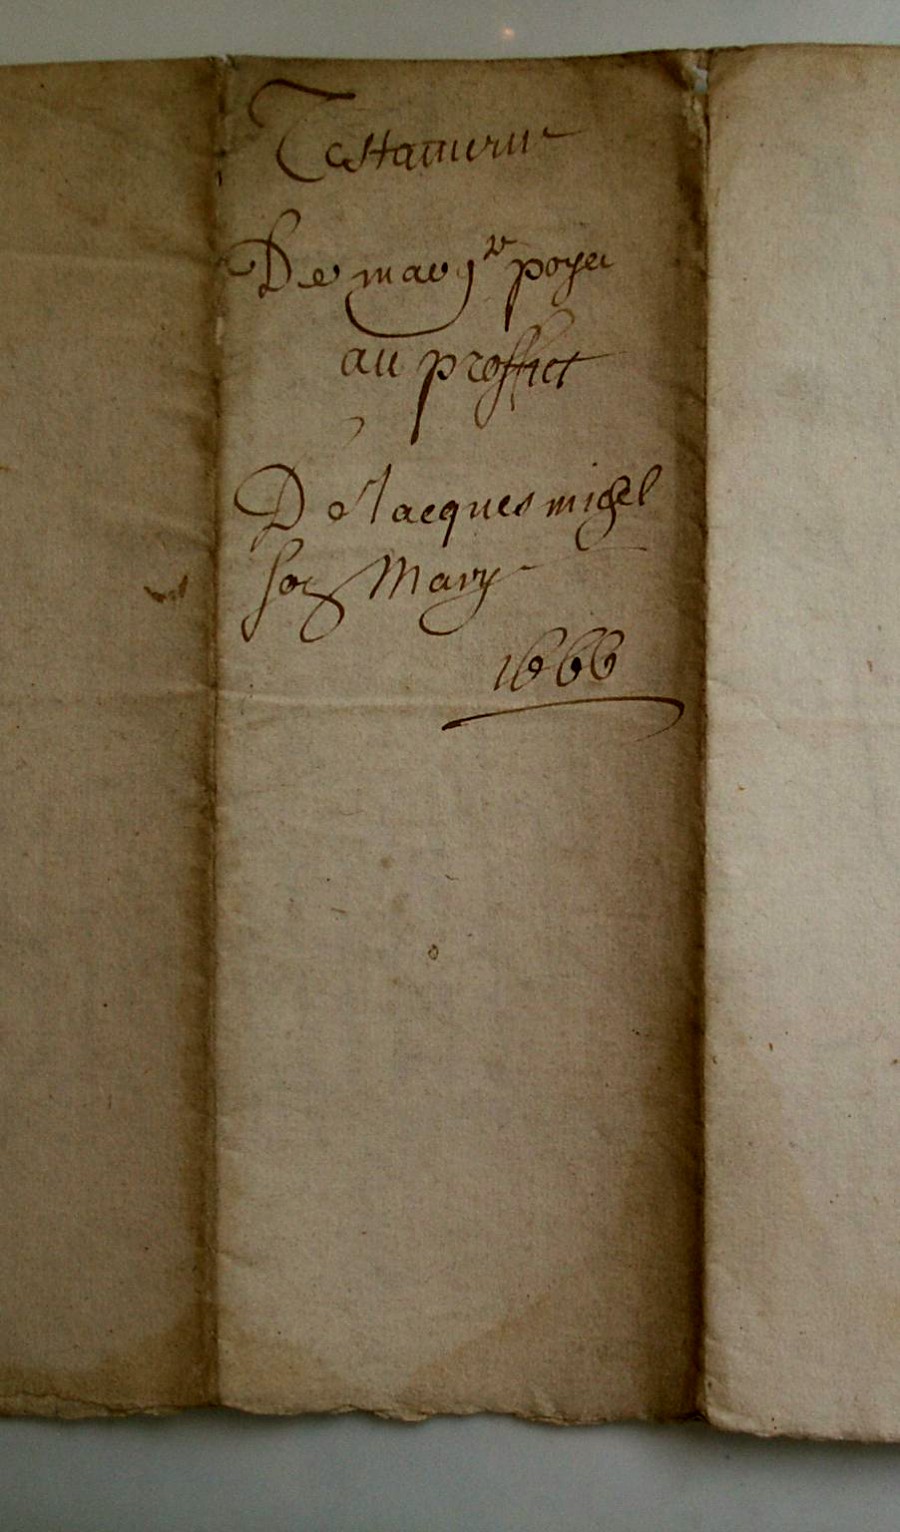 Testament
De marg^te poyer
au proffict
De Jacques migel
son Mary
1666